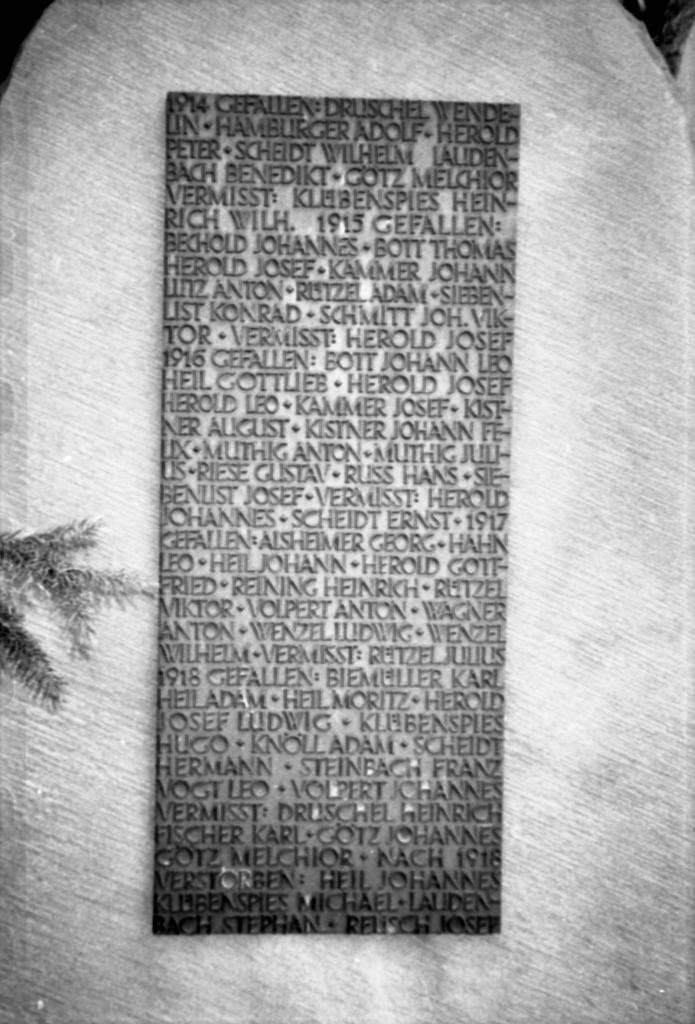 1914 GEFALLEN: DRUSCHEL WENDE-
LIN • HAMBURGER ADOLF • HEROLD
PETER • SCHEIDT WILHELM LAUDEN-
BACH BENEDIKT • GÖTZ MELCHIOR
VERMISST: KLÜBENSPIES HEIN-
RICH WILH. 1915 GEFALLEN:
BECHOLD JOHANNES • BOTT THOMAS
HEROLD JOSEF • KAMMER JOHANN
LUTZ ANTON • RÜTZEL ADAM • SIEBEN-
LIST KONRAD • SCHMITT JOH. VIK-
TOR • VERMISST: HEROLD JOSEF
1916 GEFALLEN: BOTT JOHANN LEO
HEIL GOTTLIEB • HEROLD JOSEF
HEROLD LEO • KAMMER JOSEF • KIST-
NER AUGUST • KISTNER JOHANN FE-
LIX • MUTHIG ANTON • MUTHIG JULI-
US • RIESE GUSTAV • RUSS HANS • SIE-
BENLIST JOSEF • VERMISST: HEROLD
JOHANNES • SCHEIDT ERNST • 1917
GEFALLEN: ALSHEIMER GEORG • HAHN
LEO • HEIL JOHANN • HEROLD GOTT-
FRIED • REINING HEINRICH • RÜTZEL
VIKTOR • VOLPERT ANTON • WAGNER
ANTON • WENZEL LUDWIG • WENZEL
WILHELM • VERMISST: RÜTZEL JULIUS
1918 GEFALLEN: BIEMÜLLER KARL
HEIL ADAM • HEIL MORITZ • HEROLD
JOSEF LUDWIG • KLÜBENSPIES
HUGO • KNÖLL ADAM • SCHEIDT
HERMANN • STEINBACH FRANZ
VOGT LEO • VOLPERT JOHANNES
VERMISST: DRUSCHEL HEINRICH
FISCHER KARL • GÖTZ JOHANNES
GÖTZ MELCHIOR • NACH 1918
VERSTORBEN: HEIL JOHANNES
KLÜBENSPIES MICHAEL • LAUDEN-
BACH STEPHAN • REUSCH JOSEF